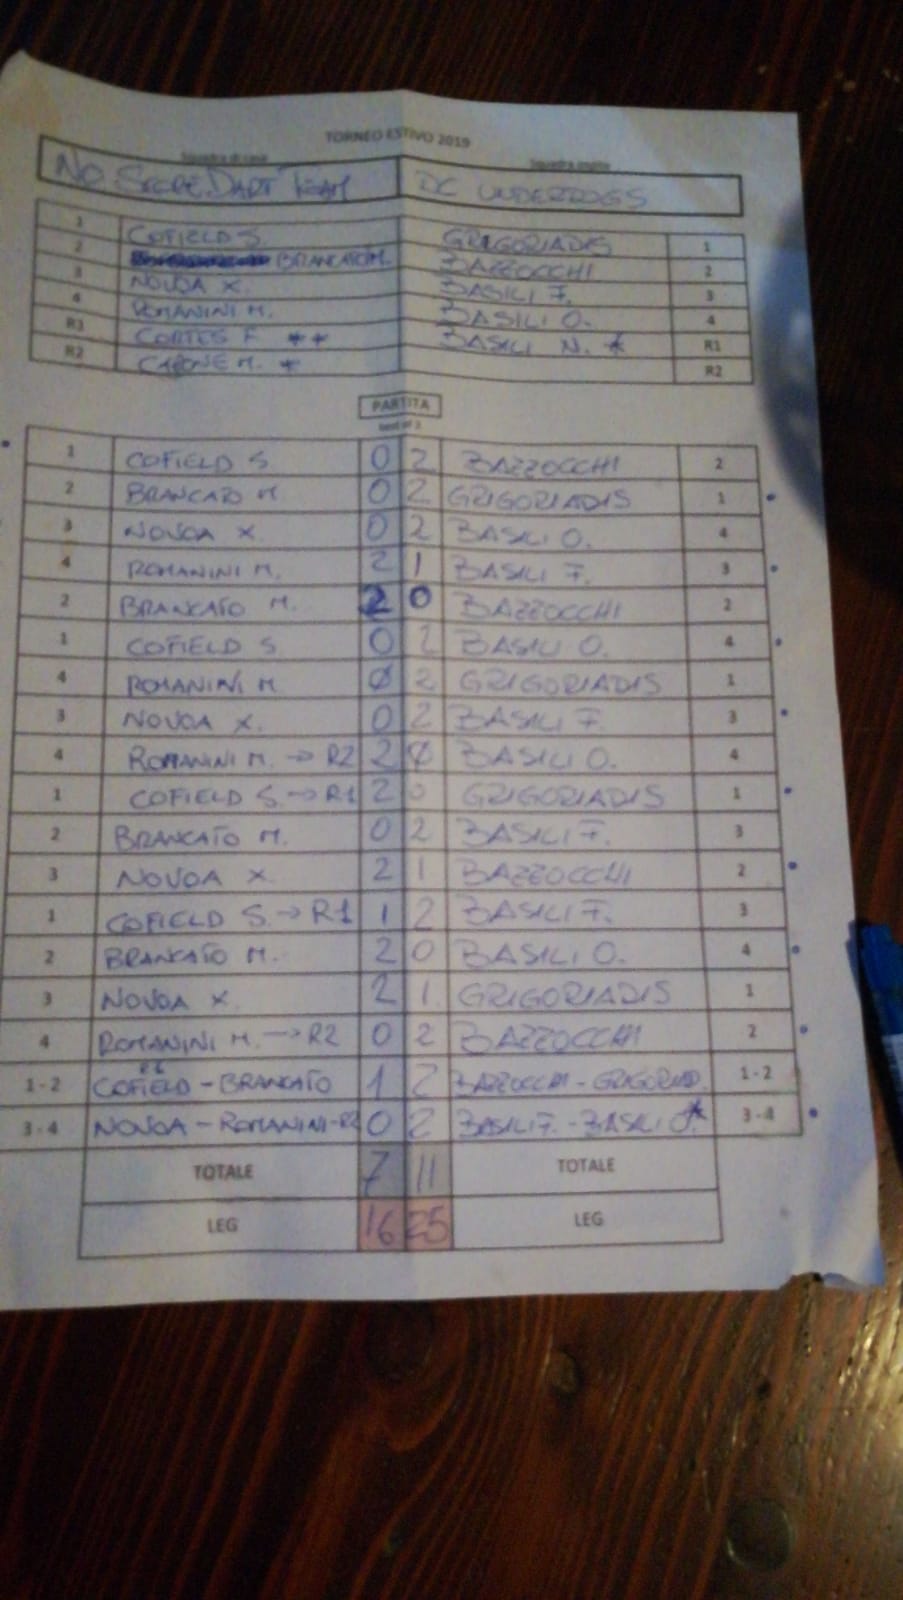 TORNEO ESTIVO 2019
Squadra di casa Squadra ospite
NO SCORE DART TEAM DC UNDERDOGS
1 COFIELD S. GRIGORIADIS 1
2 BRANCATO M. BAZZOCCHI 2
3 NOVOA X. BASILI F. 3
4 ROMANINI M. BASILI O. 4
R1 CORTES F. ** BASILI N. * R1
R2 CAPONE M. * R2
PARTITA
best of 3
1 COFIELD S. 0 2 BAZZOCCHI 2
2 BRANCATO M. 0 2 GRIGORIADIS 1
3 NOVOA X. 0 2 BASILI O. 4
4 ROMANINI M. 2 1 BASILI F. 3
2 BRANCATO M. 2 0 BAZZOCCHI 2
1 COFIELD S 0 2 BASILI O. 4
4 ROMANINI M. 0 2 GRIGORIADIS 1
3 NOVOA X. 0 2 BASILI F. 3
4 ROMANINI M. → R2 2 0 BASILI O. 4
1 COFIELD S. → R1 2 0 GRIGORIADIS 1
2 BRANCATO M. 0 2 BASILI F. 3
3 NOVOA X 2 1 BAZZOCCHI 2
1 COFIELD S. → R1 1 2 BASILI F. 3
2 BRANCATO M. 2 0 BASILI O. 4
3 NOVOA X. 2 1 GRIGORIADIS 1
4 ROMANINI M. → R2 0 2 BAZZOCCHI 2
1-2 COFIELD - BRANCATO 1 2 BAZZOCCHI - GRIGORIAD. 1-2
3-4 NOVOA - ROMANINI - R2 0 2 BASILI F. - BASILI O.* 3-4
TOTALE 7 11 TOTALE
LEG 16 25 LEG